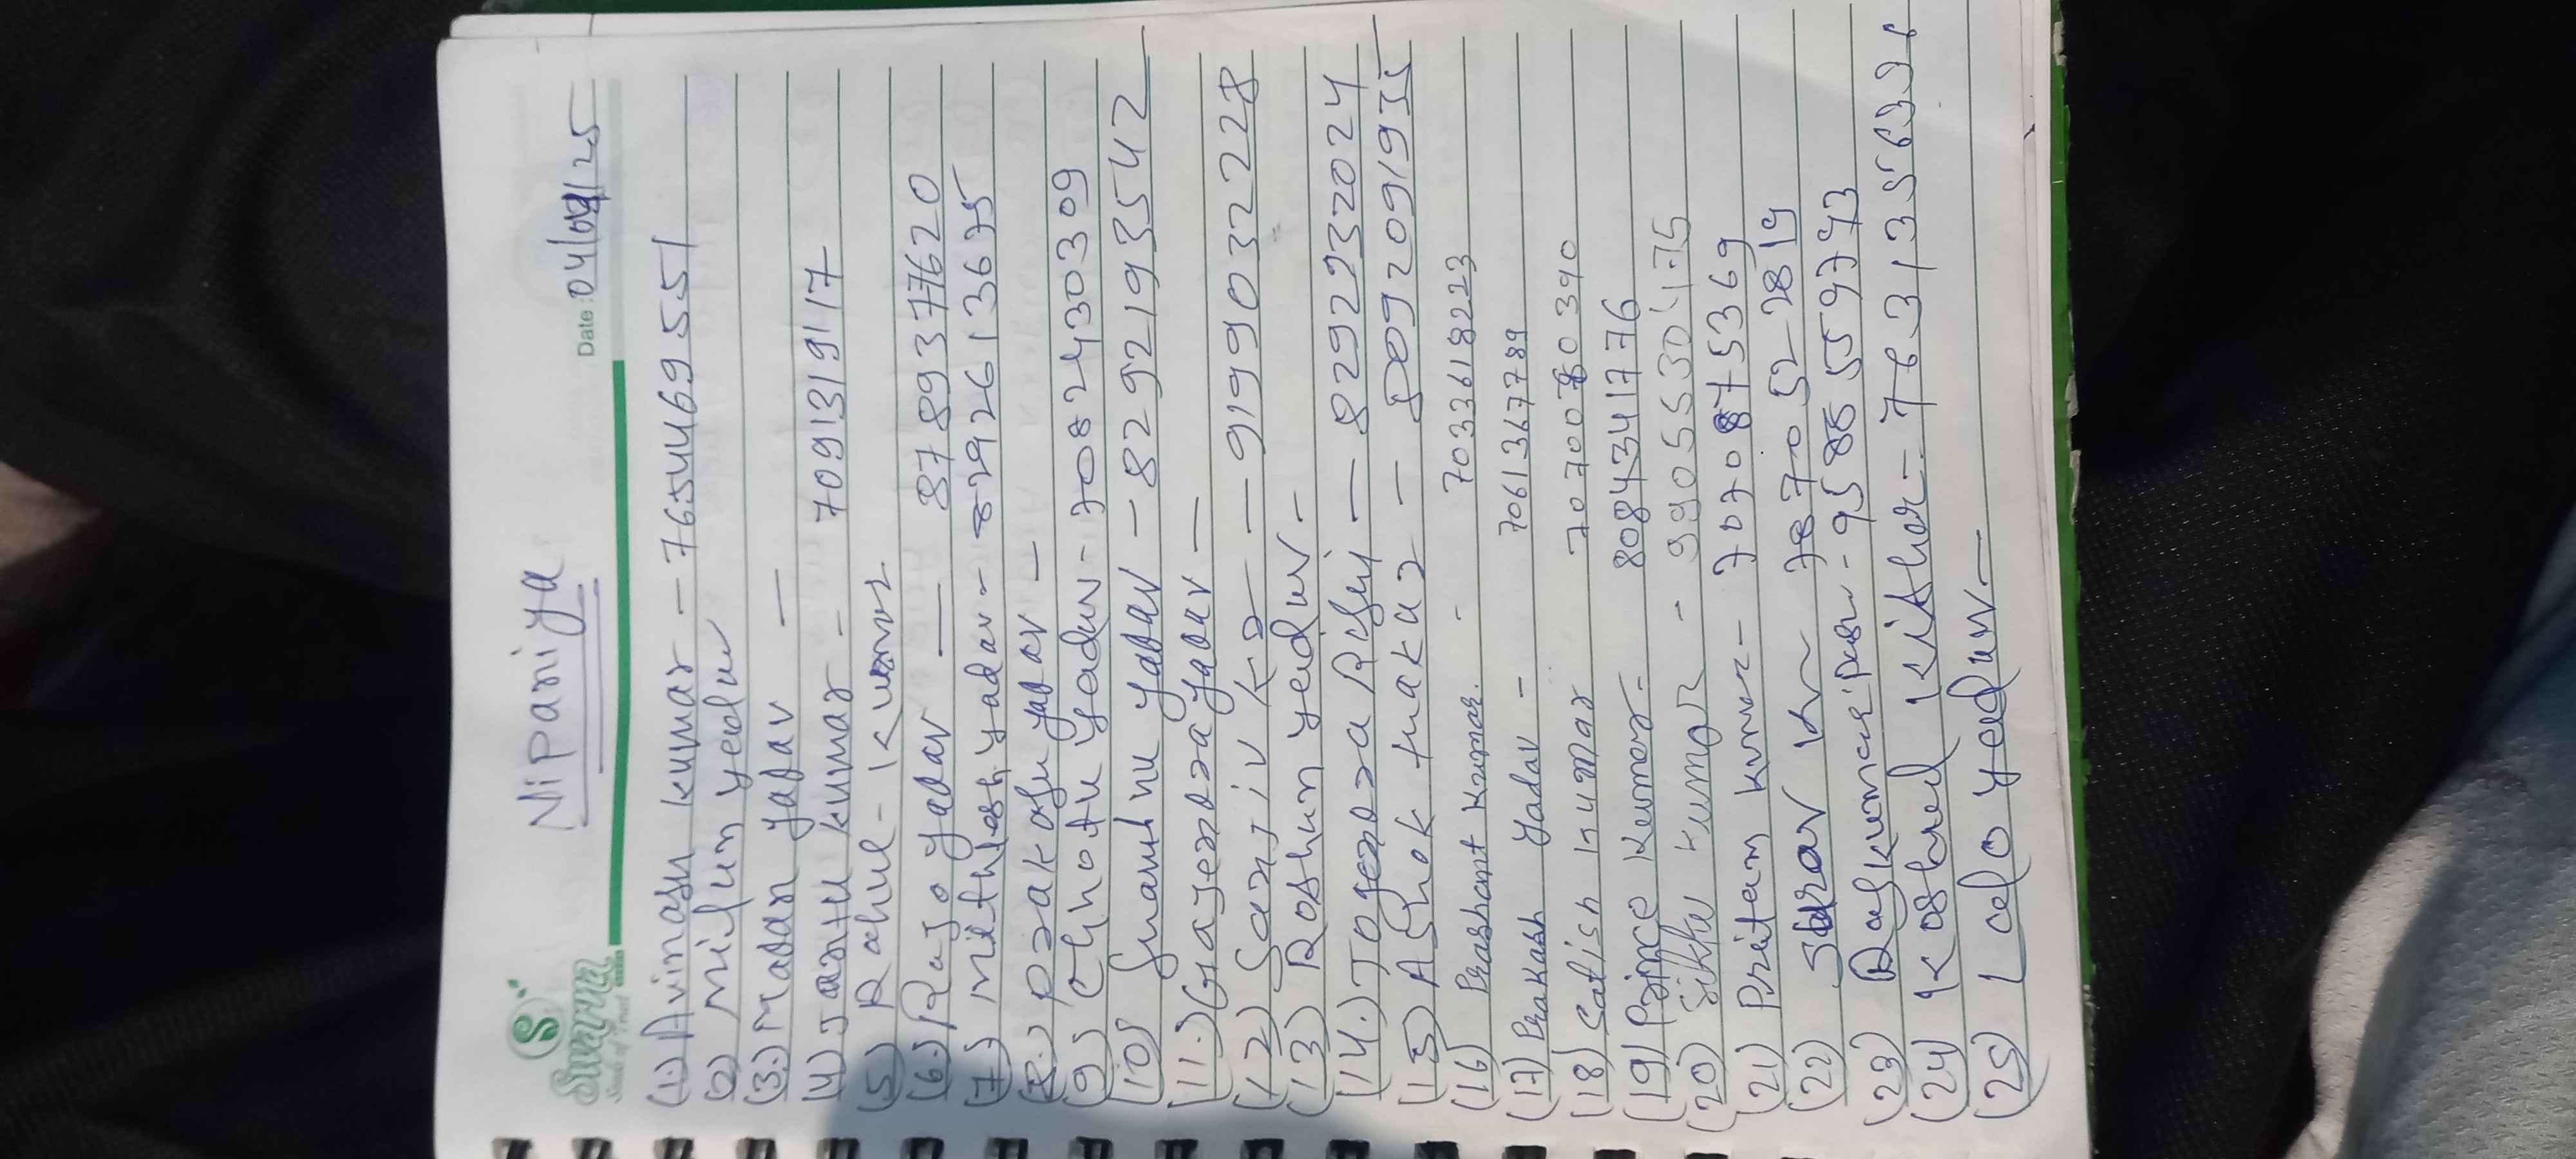 Nipaniya
Swarna
Date : 04/04/25
(1.) Avinash kumar - 7654469551
(2) Milun yedav
(3.) Madan yadav -
(4) Jantu kumar - 7091319117
(5) Rahul - Kumar
(6.) Rajo yadav - 8789377620
(7.) Mithlesh yadav - 8292613675
(8.) Prakash yadav -
(9) Chhotu yadav - 7082430309
(10) yadav - 8292193542
(11.) Gajendra yadav -
(12) Sanjiv Kr - 9199032228
(13) Roshun yedav -
(14.) Jogendra Rishi - 8292932024
(15) AShok thakur - 8092091935
(16) Prashant Kumar. - 7033618223
(17) Prakash Yadav - 7061367789
(18) Satish Kumar 7070080390
(19) Prince Kumar - 8084341776
(20) Kumar - 9905530
(21) Pritam kumar - 7070875369
(22) Kr 7870522819
(23) Rajkumar
(24) Kishor - 7631356326
(25) yedav -